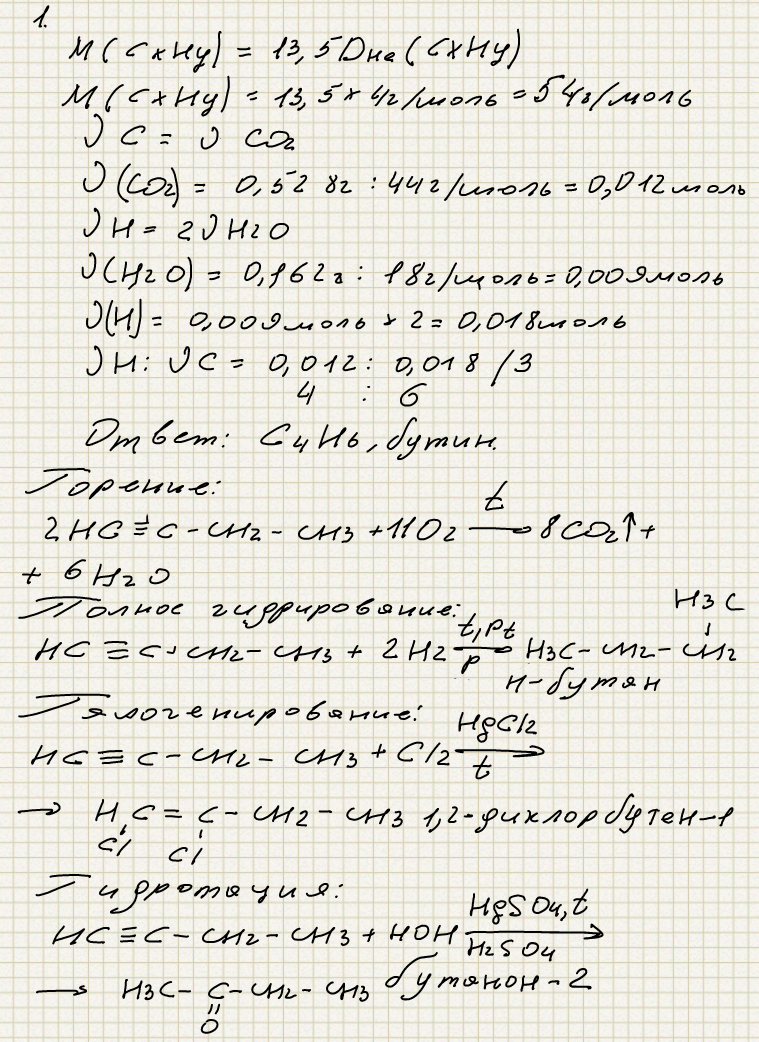 1.
M(CxHy) = 13,5 Dне(CxHy)
M(CxHy) = 13,5 × 4г/моль = 54г/моль
ν C = ν CO2
ν(CO2) = 0,528г : 44г/моль = 0,012моль
ν H = 2ν H2O
ν(H2O) = 0,162г : 18г/моль = 0,009моль
ν(H) = 0,009моль × 2 = 0,018моль
ν H : ν C = 0,012 : 0,018 /3
4 : 6
Ответ: C4H6, бутин.
Горение:
2HC≡C-CH2-CH3 + 11O2 t→ 8CO2↑ +
+ 6H2O
Полное гидрирование:
H3C
HC≡C-CH2-CH3 + 2H2 t,Pt→ P H3C-CH2-CH2
н-бутан
Галогенирование:
HC≡C-CH2-CH3 + Cl2 HgCl2→ t
→ HC=C-CH2-CH3 1,2-дихлорбутен-1
Cl Cl
Гидротация:
HC≡C-CH2-CH3 + HOH HgSO4,t→ H2SO4
→ H3C-C-CH2-CH3 бутанон-2
=
O